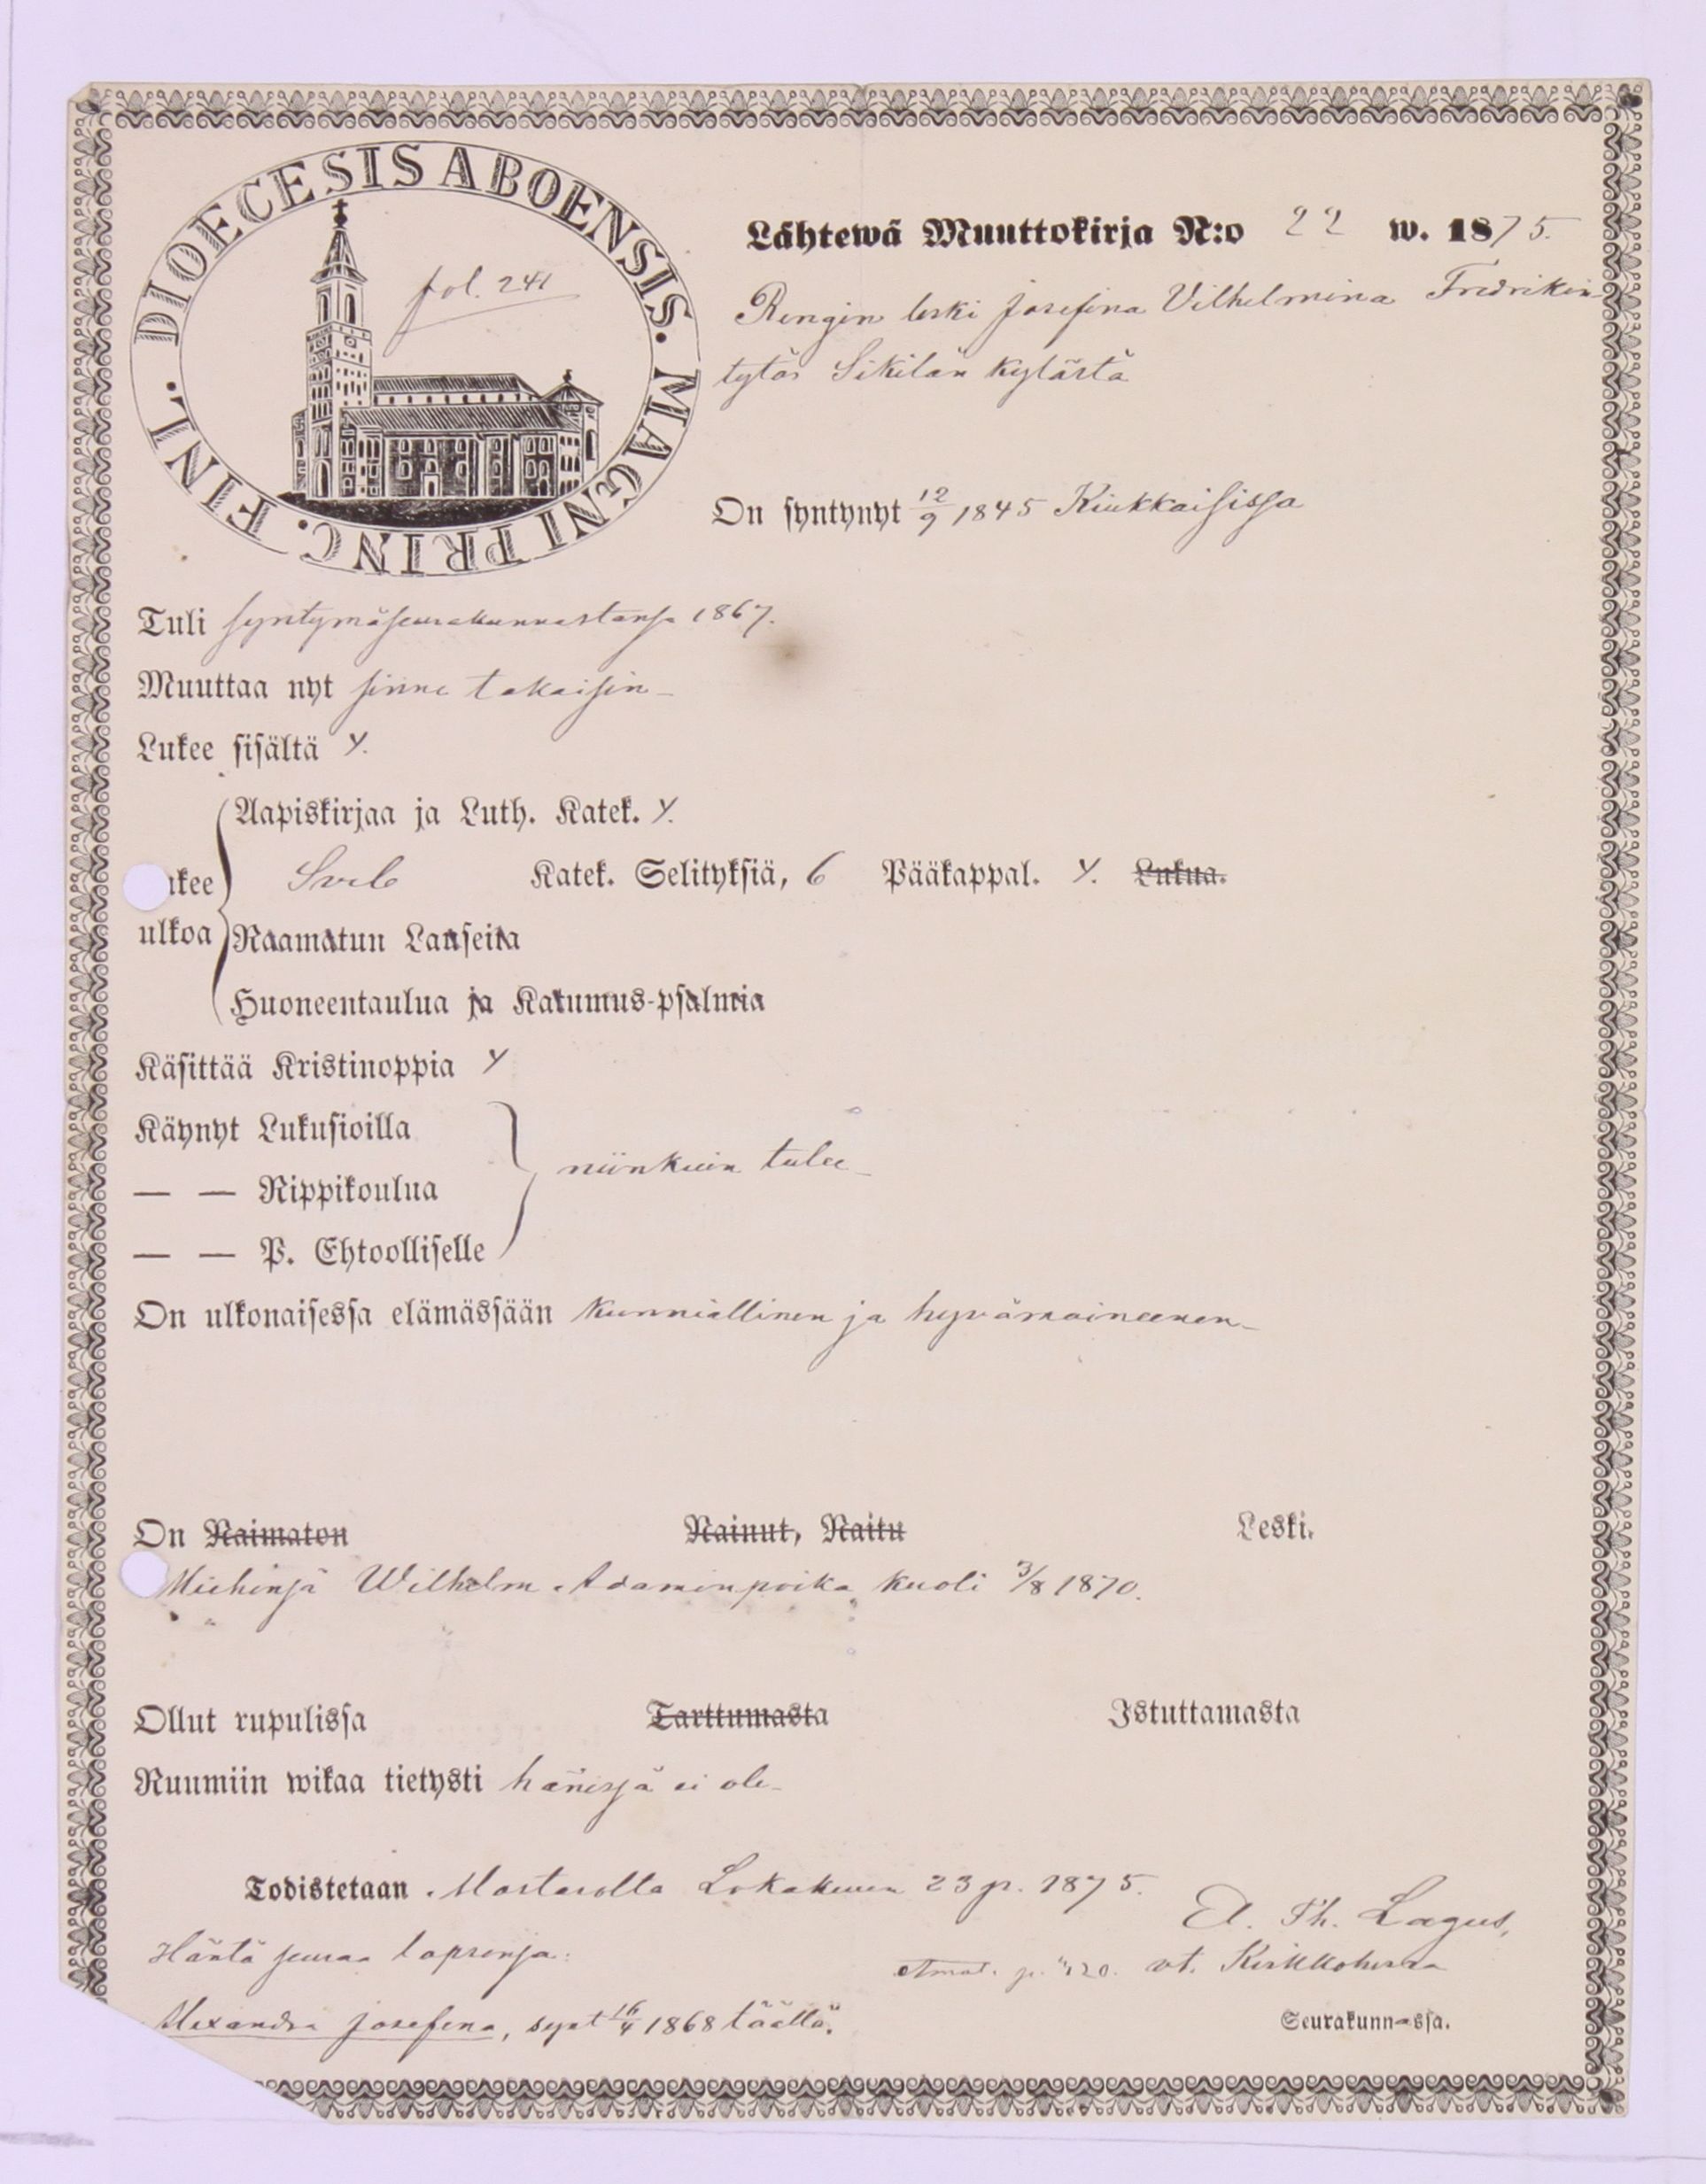 DIOECESIS ABOENSIS. MAGNI PRINC. FINL.
fol. 241
Lähtewä Muuttokirja N:o 22 w. 1875.
Rengin leski Josefina Vilhelmina Fredrikin
tytär Sikilän kylästä
On syntynyt 12/9 1845 Kiukkaisissa
Tuli syntymäseurakunnastansa 1867.
Muuttaa nyt sinne takaisin
Lukee sisältä y.
Aapiskirjaa ja Luth. Katek. y.
Lukee ulkoa
Sveb Katek. Selityksiä, 6 Pääkappal. y. Lukua.
Raamatun Lauseita
Huoneentaulua ja Katumus-psalmia
Käsittää Kristinoppia y
Käynyt Lukusioilla
— — Rippikoulua
niinkuin tulee
— — P. Ehtoolliselle
On ulkonaisessa elämässään kunniallinen ja hyvämaineenen
On Naimaton Nainut, Naitu Leski.
Miehensä Wilhelm Adaminpoika kuoli 3/8 1870.
Ollut rupulissa Tarttumasta Istuttamasta
Ruumiin wikaa tietysti hänessä ei ole
Todistetaan Mastasolla Lokakuun 23 p. 1875.
Th. Lagus,
vt. Kirkkoherra
Häntä seuraa lapsensa:
Alexandra Josefina, synt 16/4 1868 täällä.
Seurakunnassa.